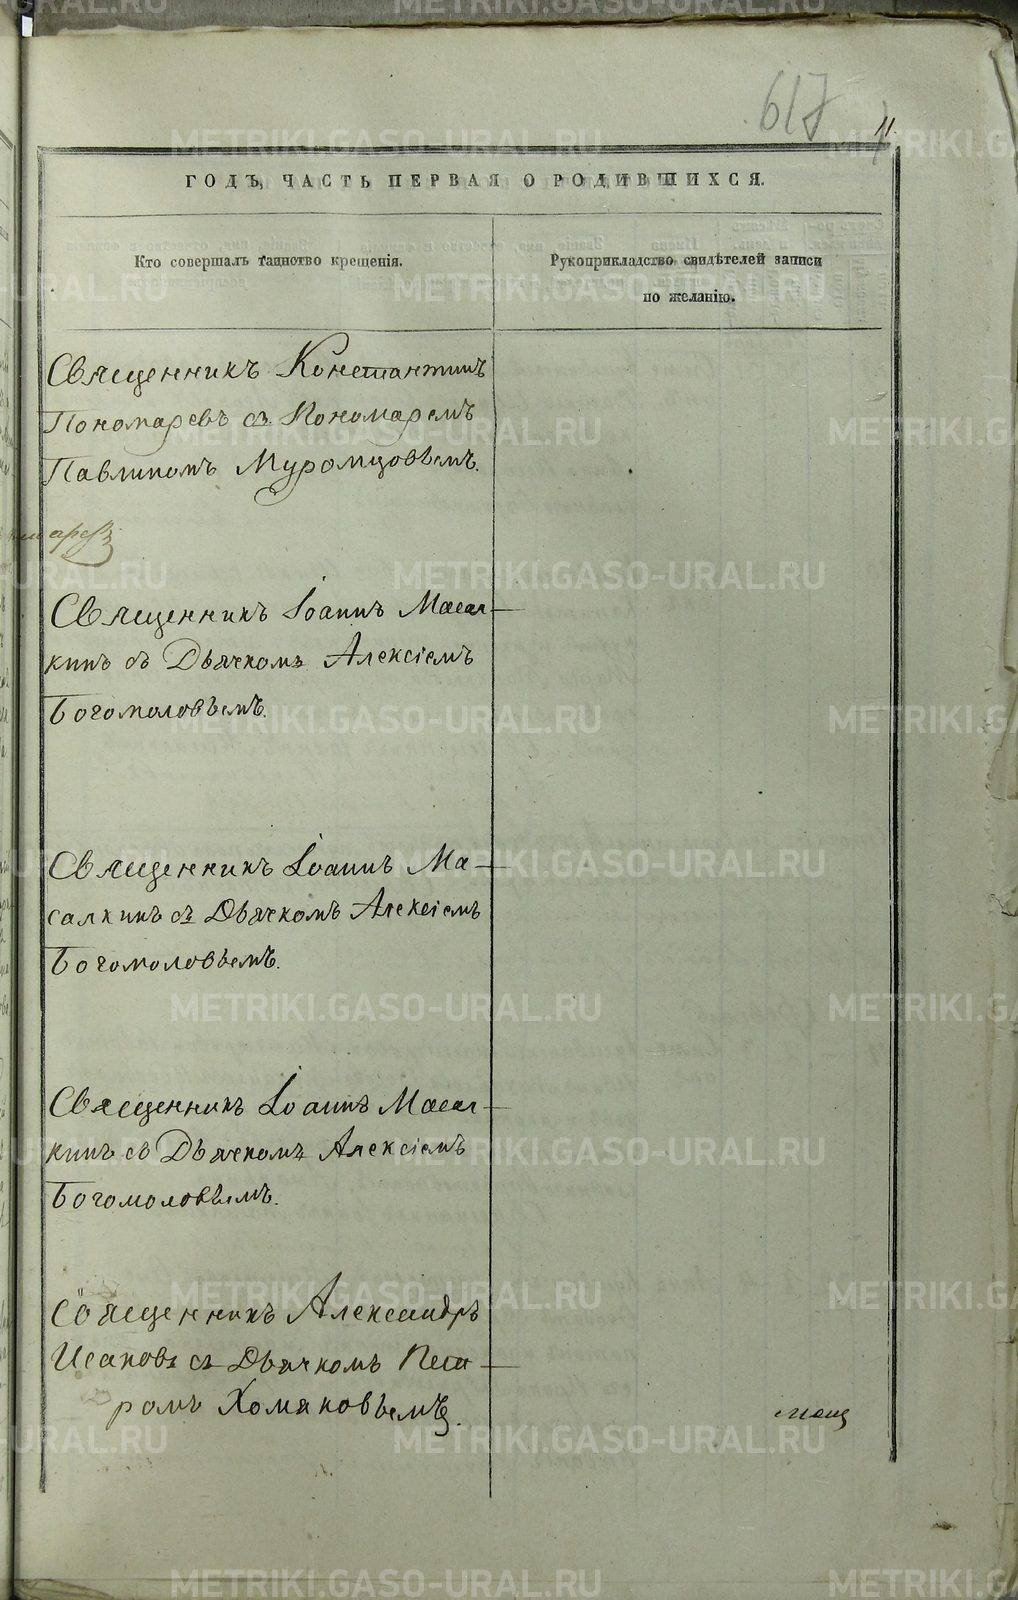 617
11
ГОДЪ, ЧАСТЬ ПЕРВАЯ О РОДИВШИХСЯ.
Кто совершалъ таинство крещенія.
Рукоприкладство свидѣтелей записи
по желанію.
Священникъ Константинъ
Пономаревъ съ Пономаремъ
Павлиномъ Муромцовымъ.
Священникъ Іоаннъ Масал-
кинъ съ Дьячкомъ Алексіемъ
Богомоловымъ.
Священникъ Іоаннъ Ма-
салкинъ съ Дьячкомъ Алексіемъ
Богомоловымъ.
Священникъ Іоаннъ Масал-
кинъ съ Дьячкомъ Алексіемъ
Богомоловымъ.
Священникъ Александръ
Исаковъ съ Дьячкомъ Пет-
ромъ Хомяковымъ.
METRIKI.GASO-URAL.RU